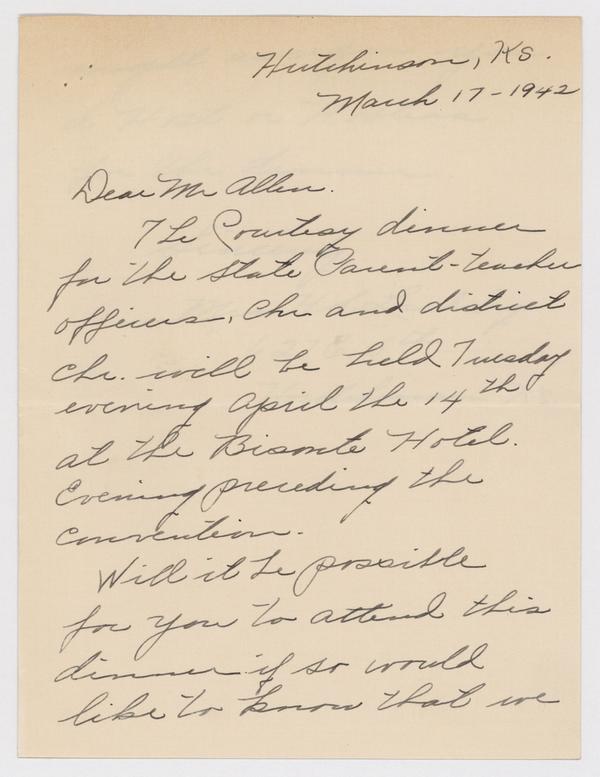 Hutchinson, Ks.
March 17-1942
Dear Mr Allen.
The Courtesy dinner
for the State Parent-teacher
officers, Chr and district
Chr. will be held Tuesday
evening April the 14th
at the Bisonte Hotel.
Evening preceding the
convention.
Will it be possible
for you to attend this
dinner if so would
like to know that we